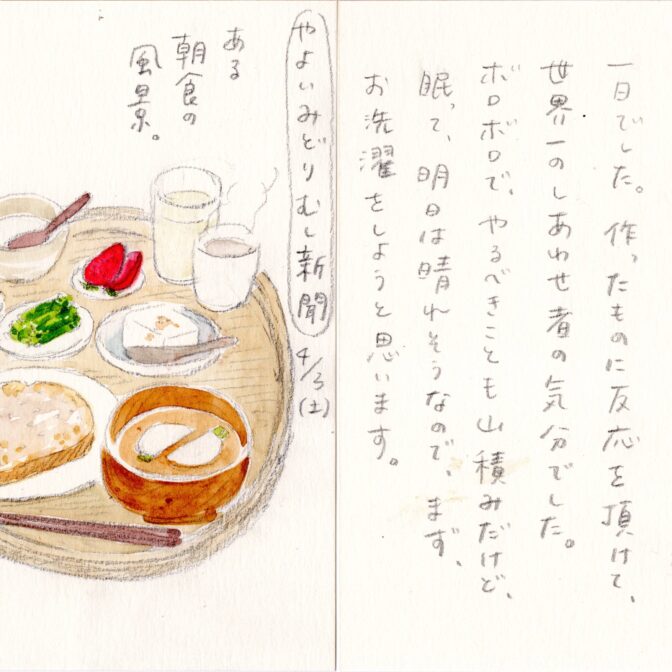 一日でした。作ったものに反応を頂けて、
世界一のしあわせ者の気分でした。
ボロボロで、やるべきことも山積みだけど、
眠って、明日は晴れそうなので、まず、
お洗濯をしようと思います。
やよいみどりむし新聞 4/3(土)
ある
朝食の
風景。